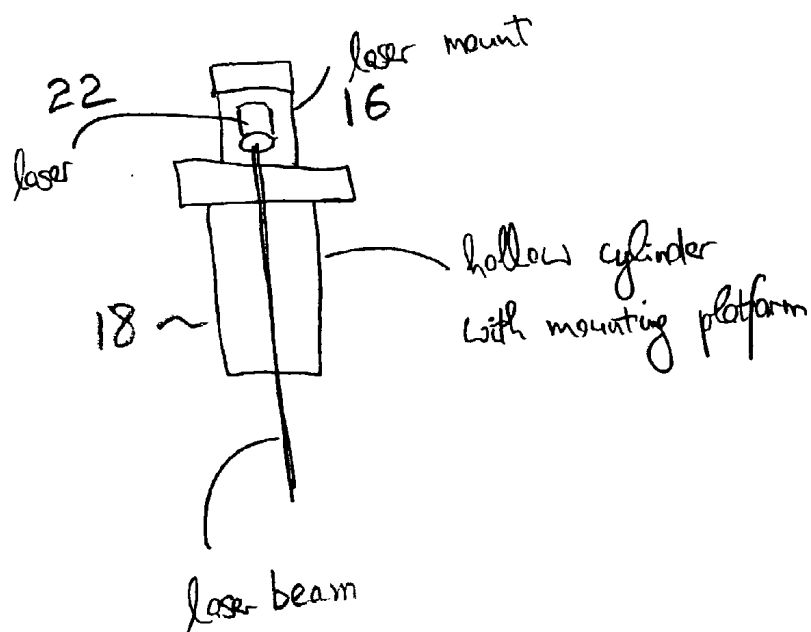 laser mount
16
22
laser
hollow cylinder
with mounting platform
18
laser beam